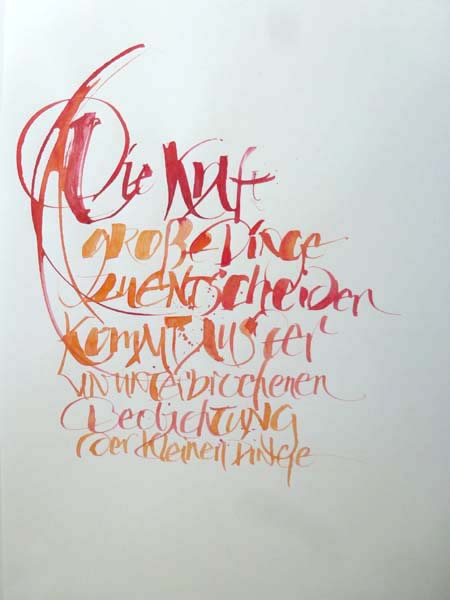 Die Kraft
große Dinge
zu entscheiden
kommt aus der
ununterbrochenen
Beobachtung
der kleinen Dinge